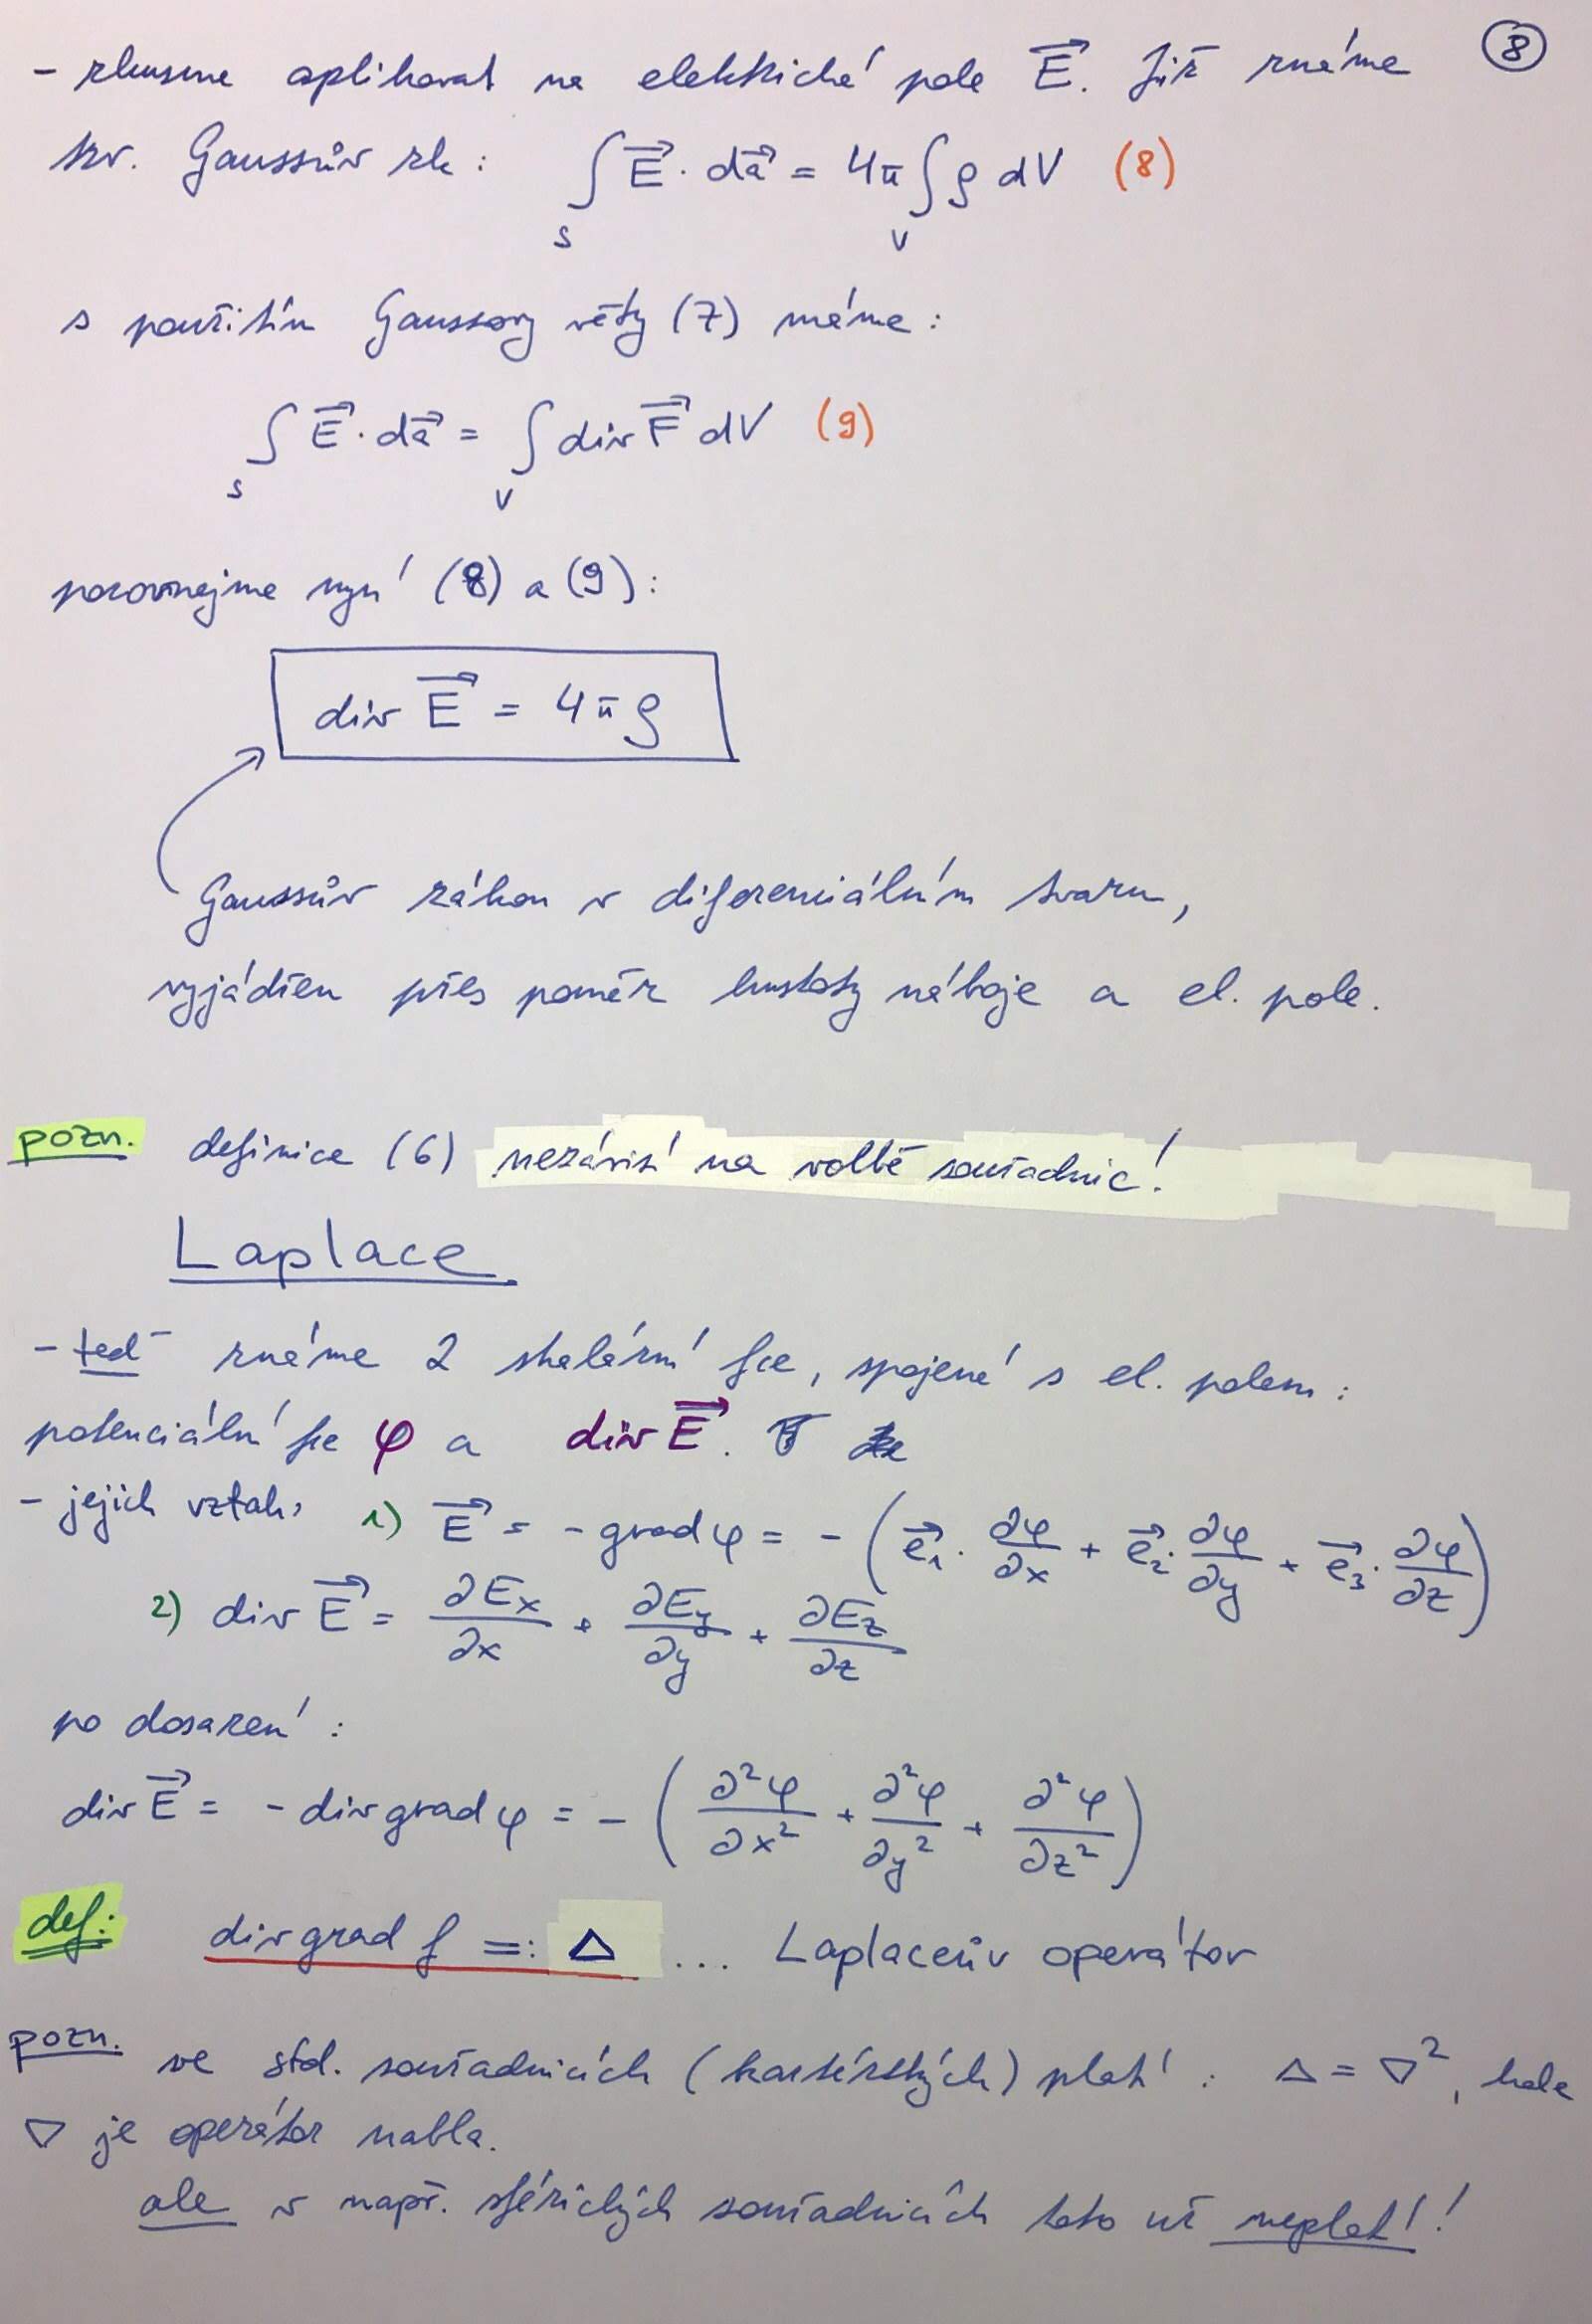 ⑧
- zkusme aplikovat na elektrické pole E⃗. Již známe
tzv. Gaussův zk: ∫_S E⃗ · da⃗ = 4π ∫_V ρ dV (8)
s použitím Gaussovy věty (7) máme:
∫_S E⃗ · da⃗ = ∫_V div F⃗ dV (9)
porovnejme nyní (8) a (9):
div E⃗ = 4π ρ
Gaussův zákon v diferenciálním tvaru,
vyjádřen přes poměr hustoty náboje a el. pole.
pozn. definice (6) nezávisí na volbě souřadnic!
Laplace
- teď známe 2 skalární fce, spojené s el. polem:
potenciální fce φ a div E⃗.
- jejich vztah: 1) E⃗ = - grad φ = - (e⃗₁ · ∂φ/∂x + e⃗₂ · ∂φ/∂y + e⃗₃ · ∂φ/∂z)
2) div E⃗ = ∂Ex/∂x + ∂Ey/∂y + ∂Ez/∂z
po dosazení:
div E⃗ = - div grad φ = - (∂²φ/∂x² + ∂²φ/∂y² + ∂²φ/∂z²)
def: div grad f =: Δ ... Laplaceův operátor
pozn. ve std. souřadnicích (kartézských) platí: Δ = ∇², kde
∇ je operátor nabla.
ale v např. sférických souřadnicích toto už neplatí!